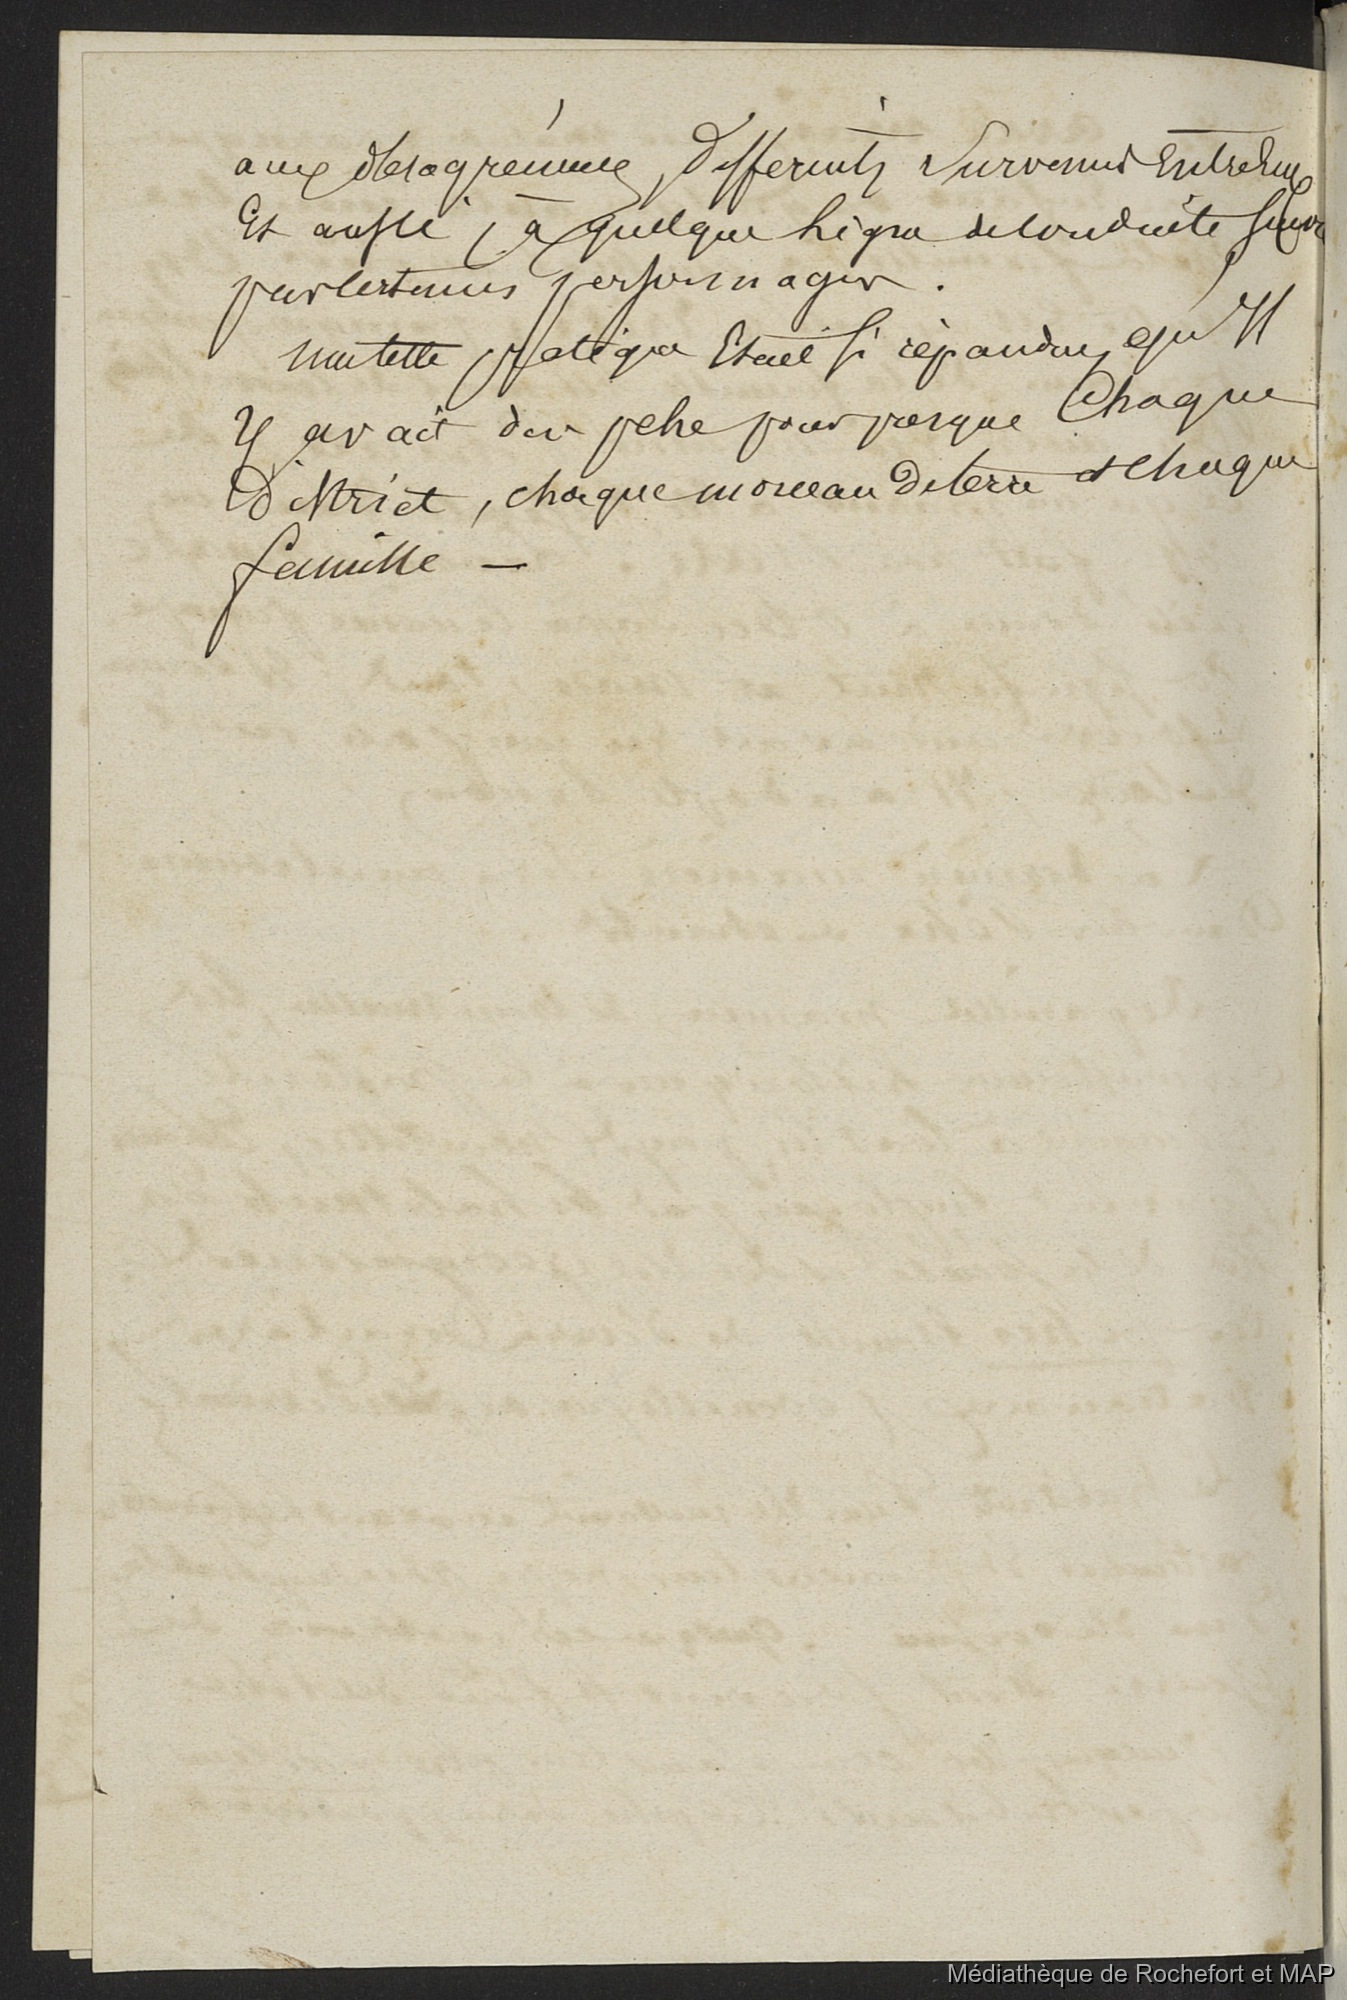 aux désagréments, differents survenus Entre Eux
Et aussi, à quelque ligne de conduite suivie
par certains personnages.
une telle pratique Etait si répandue, qu'Il
Y avait des pehe pour presque Chaque
District, chaque morceau de terre et Chaque
famille —
Médiathèque de Rochefort et MAP